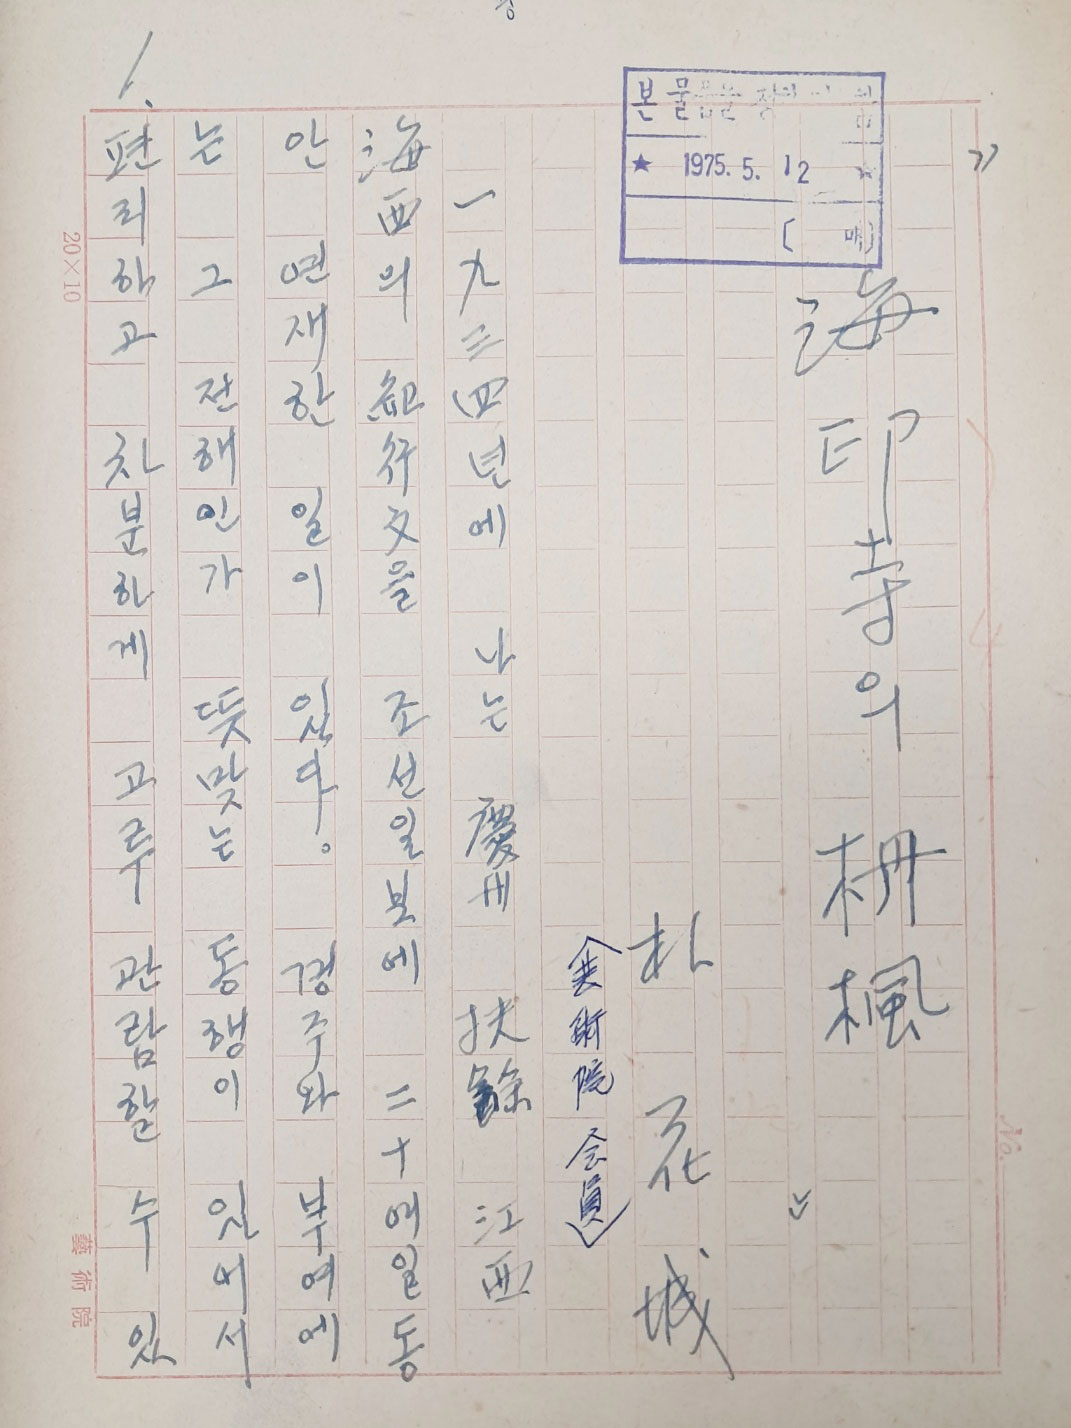 海印寺의 丹楓
朴花城
(芸術院 会員)
一九三四년에 나는 慶州 扶餘 江西
海西의 紀行文을 조선일보에 二十여일동
안 연재한 일이 있다. 경주와 부여에
는 그 전해인가 뜻맞는 동행이 있어서
편리하고 차분하게 고루 관람할 수 있
1.
1975. 5. 12
20×10
藝術院
No.